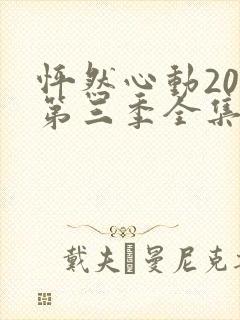 怦然心動20
第三季全集
戴夫·曼尼克